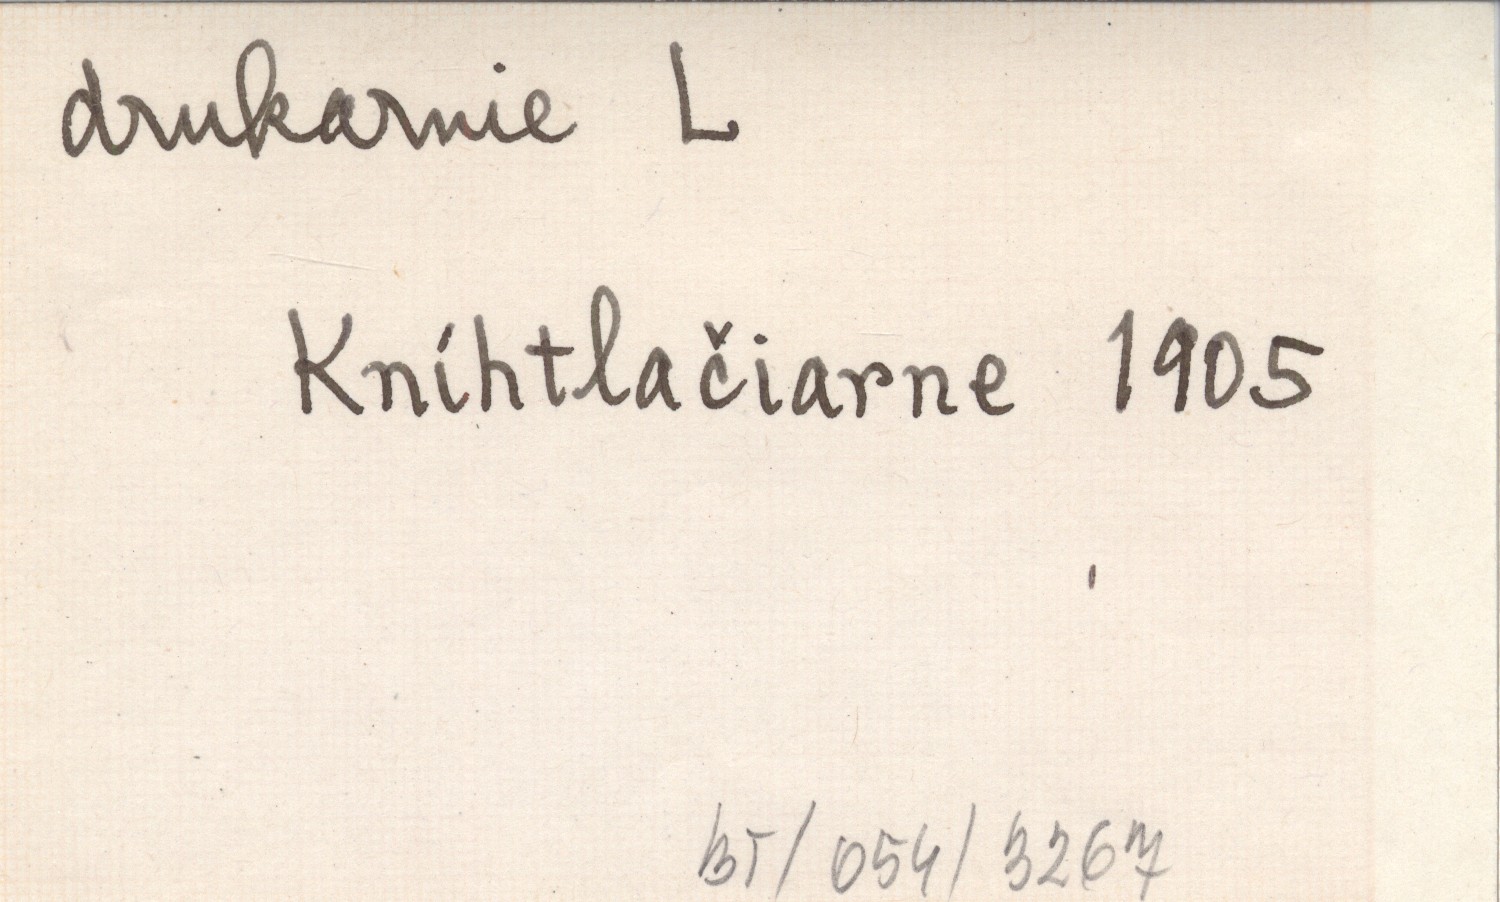 drukarnie L
Kníhtlačiarne 1905
BT/054/3267